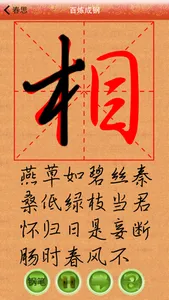 春思
百炼成钢
相
燕草如碧丝秦
桑低绿枝当君
怀归日是妾断
肠时春风不
钢笔